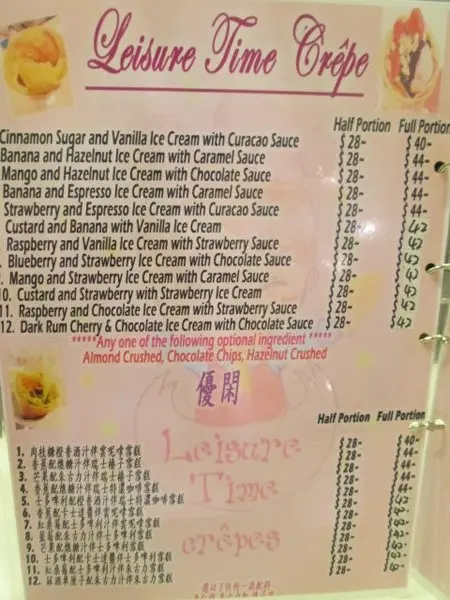 Leisure Time Crêpe
Half Portion Full Portion
Cinnamon Sugar and Vanilla Ice Cream with Curacao Sauce $28- $40-
Banana and Hazelnut Ice Cream with Caramel Sauce $28- $44-
Mango and Hazelnut Ice Cream with Chocolate Sauce $28- $44-
Banana and Espresso Ice Cream with Caramel Sauce $28- $44-
Strawberry and Espresso Ice Cream with Curacao Sauce $28- $44-
Custard and Banana with Vanilla Ice Cream $28- $42
Raspberry and Vanilla Ice Cream with Strawberry Sauce $28- $42
Blueberry and Strawberry Ice Cream with Chocolate Sauce $28- $42
Mango and Strawberry Ice Cream with Caramel Sauce $28- $42
10. Custard and Strawberry with Strawberry Ice Cream $28- $42
11. Raspberry and Chocolate Ice Cream with Strawberry Sauce $28- $42
12. Dark Rum Cherry & Chocolate Ice Cream with Chocolate Sauce $28- $42
*****Any one of the following optional ingredient *****
Almond Crushed, Chocolate Chips, Hazelnut Crushed
優閑
Leisure
Time
crêpes
Half Portion Full Portion
1. 肉桂糖橙香酒汁伴雲呢嗱雪糕 $28- $40-
2. 香蕉配焦糖汁伴瑞士榛子雪糕 $28- $44-
3. 芒果配朱古力汁伴瑞士榛子雪糕 $28- $44-
4. 香蕉配焦糖汁伴瑞士特濃咖啡雪糕 $28- $44-
5. 士多啤利配橙香酒汁伴瑞士特濃咖啡雪糕 $28-
6. 香蕉配卡士達醬伴雲呢嗱雪糕 $28- $42-
7. 紅桑莓配士多啤利汁伴雲呢嗱雪糕 $28- $42-
8. 藍莓配朱古力汁伴士多啤利雪糕 $28- $42-
9. 芒果配焦糖汁伴士多啤利雪糕 $28- $42-
10. 士多啤利配卡士達醬伴士多啤利雪糕 $28- $42-
11. 紅桑莓配士多啤利汁伴朱古力雪糕 $28- $42-
12. 冧酒車厘子配朱古力汁伴朱古力雪糕 $28- $42-